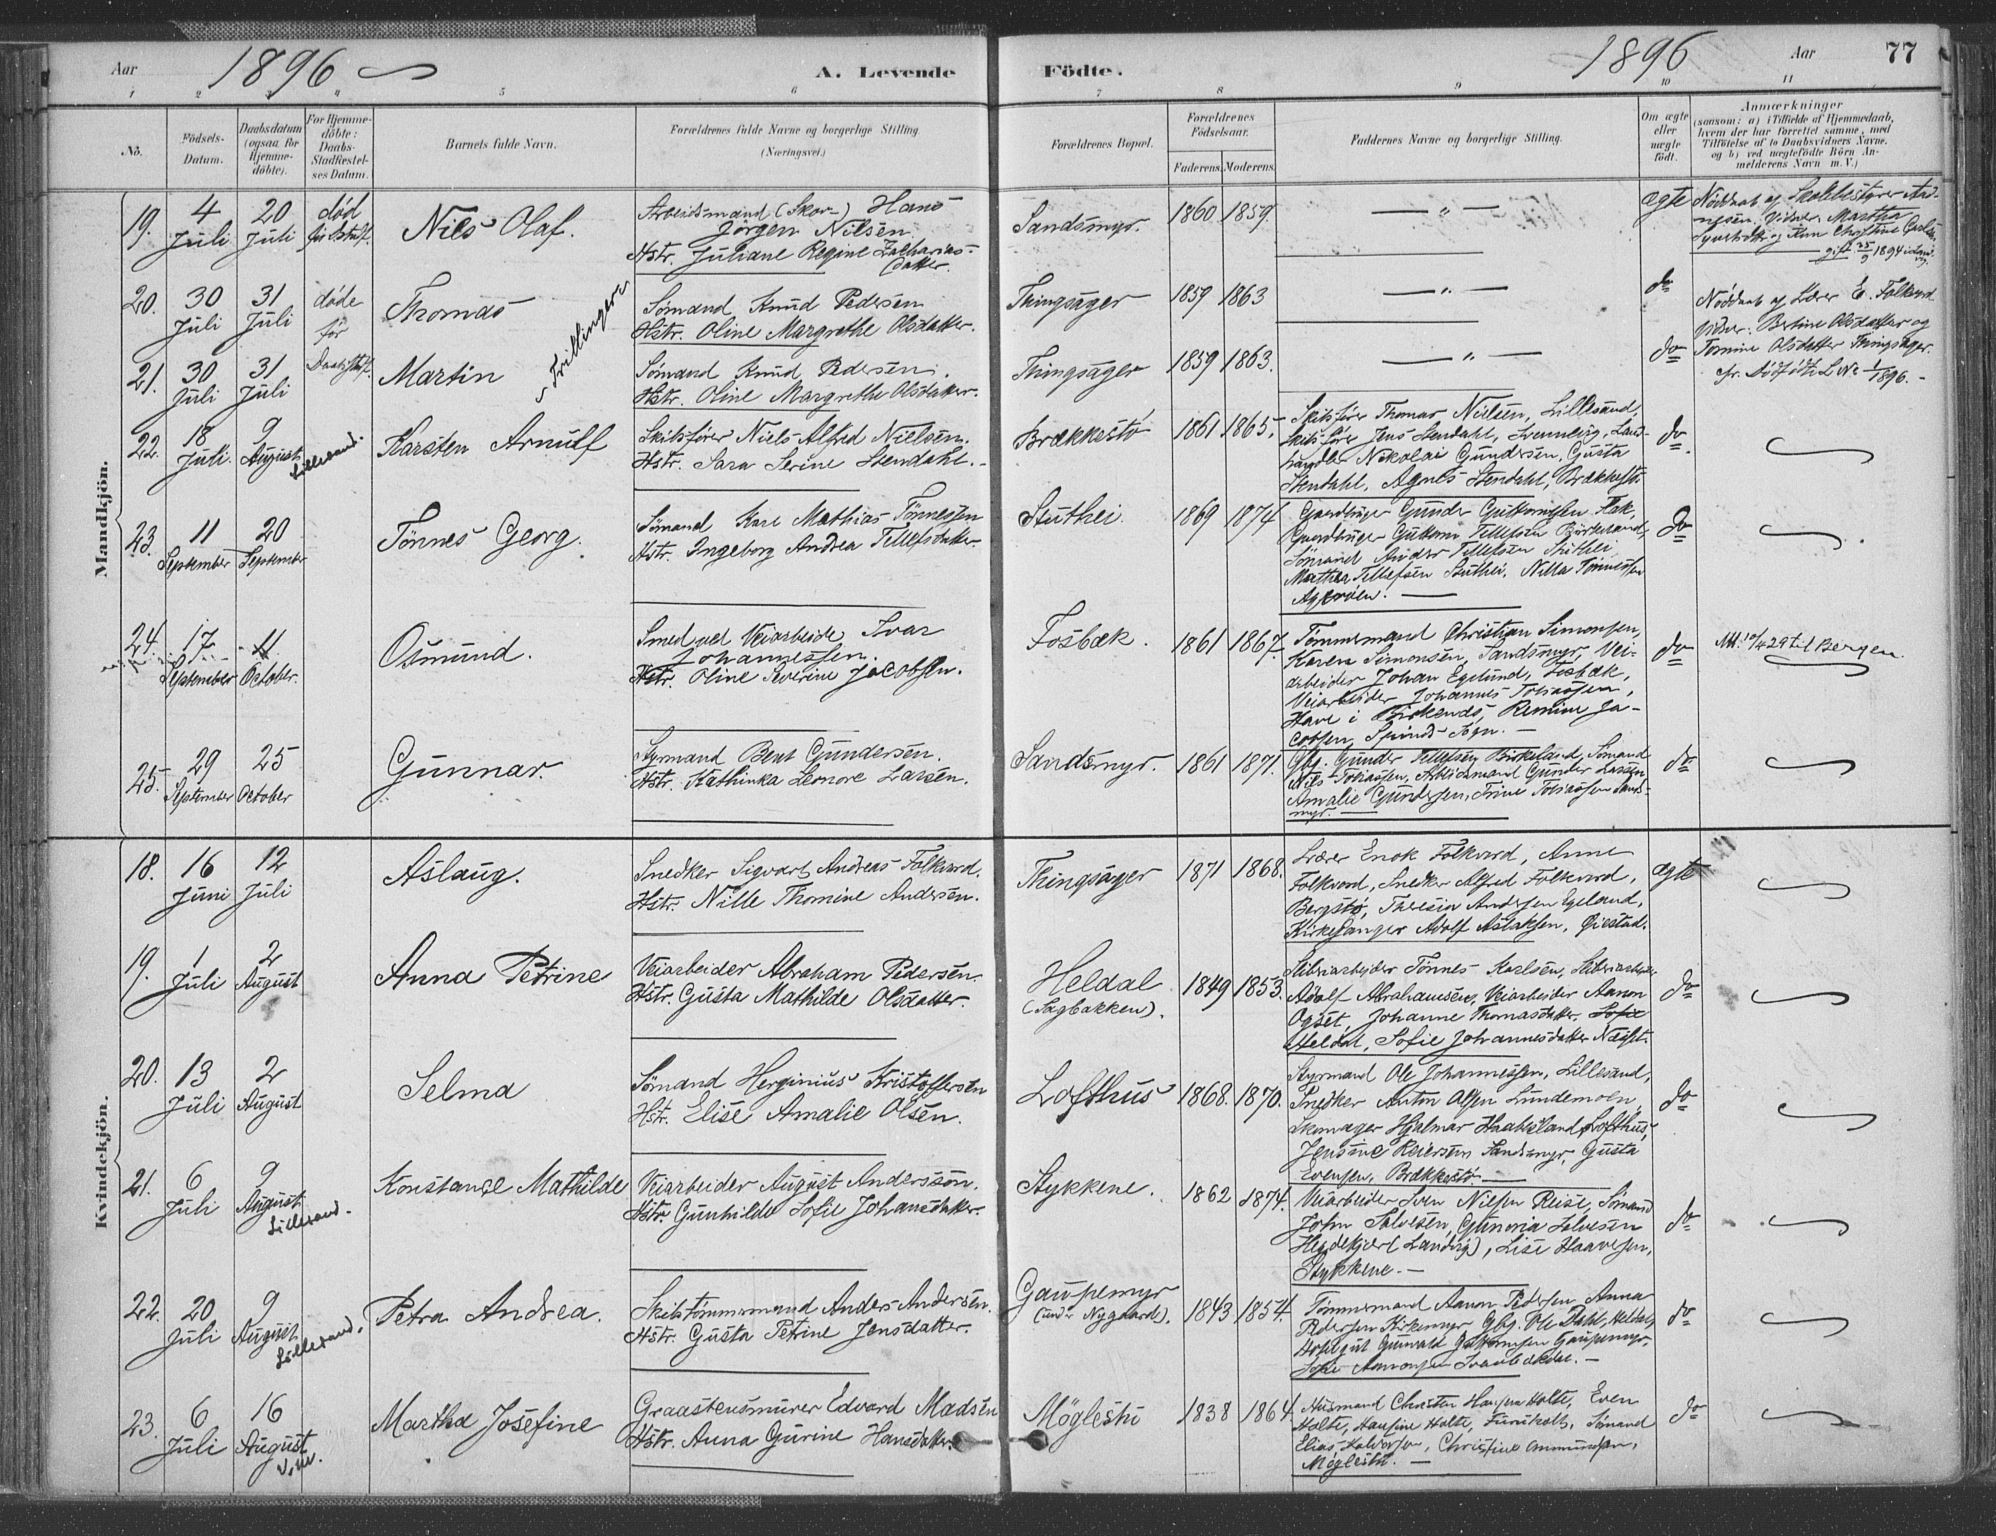 Aar 1896 A. Levende Födte. 1896 Aar 77
1 2 3 4 5 6 7 8 9 10 11
No.
Födsels-Datum.
Daabsdatum (ogsaa for Hjemme-döbte).
For Hjemme-döbte: Daabs-Stadfæstel-ses Datum.
Barnets fulde Navn.
Forældrenes fulde Navne og borgerlige Stilling (Næringsvei.)
Forældrenes Bopæl.
Forældrenes Födselsaar.
Faderens. Moderens.
Faddernes Navne og borgerlige Stilling.
Om ægte eller uægte födt.
Anmærkninger
(saasom: a) i Tilfælde af Hjemmedaab,
hvem der har forrettet samme, med
Tilföielse af to Daabsvidners Navne.
og b) ved uægtefödte Börn An-
melderens Navn m. V.)
Mandkjön.
19. 4 Juli 20 Juli død før
Nils Olaf.
Arbeidsmand (Skov-) Hans
Jörgen Nilsen.
Hstr. Juliane Regine Zacharias-
datter.
Sandsmyr. 1860 1859. — " — ægte
Nöddaab af Skolebestyrer
Vidner Martha
gift 1894
20. 30 Juli 31 Juli døde før
Thomas
Trillinger
Sömand Knud Pedersen
Hstr. Oline Margrethe Olsdatter.
Thingsager 1859 1863 — " — do
Nöddaab af Lærer E. Folkvord
Vidner: Bertine Olsdatter og
Tomine Olsdatter Thingsager.
cfr. Dödfödte L No 1/1896. -
21. 30 Juli 31 Juli
Martin
Sömand Knud Pedersen.
Hstr. Oline Margrethe Olsdatter.
Thingsager 1859 1863. — " — do
22. 18 Juli. 9 August Lillesand.
Karsten Arnulf
Skibsförer Niels Alfred Nielsen.
Hstr. Sara Serine Stendahl. -
Brækkestö 1861 1865.
Skibsförer Thomas Nielsen, Lillesand,
Skibsförer Jens Stendahl, Svennevig, Land-
handler Nikolai Gundersen, Gusta
Stendahl, Agnes Stendahl, Brækkestö.
do.
23. 11 September 20 September
Tönnes Georg.
Sömand Karl Mathias Tönnessen
Hstr. Ingeborg Andrea Tellefsdatter.
Stuthei. 1869 1874.
Gaardbruger Gunder Guttormsen Fæk,
Gaardbruger Guttorm Tellefsen Birkeland,
Sömand Anders Tellefsen Stuthei,
Mathea Tellefsen Stuthei, Nilla Tönnessen
Ageröen. —
do
24. 17 September 11 October.
Osmund.
Smed ved Veiarbeide Ivar
Johannessen.
Hstr. Oline Severine Jacobsen.
Fosbæk. 1861 1867.
Tömmermand Christian Simonsen,
Karen Simonsen, Sandsmyr, Vei-
arbeider Johan Egelund, Fosbæk,
Veiarbeider Johannes Tobiassen,
Have i Birkenæs, Remine Ja-
cobsen, Spinds Sogn. —
do
Att. 10/4 29 til Bergen.
25. 29 September 25 October
Gunnar.
Styrmand Bent Gundersen.
Hstr. Kathinka Leonore Larsen.
Sandsmyr. 1861 1871.
Gbg. Gunder Tellefsen Birkeland, Sömand
Nils Tobiassen, Arbeidsmand Gunder Larsen,
Amalie Gundersen, Trine Tobiassen Sands-
myr. —
do
Kvindekjön.
18. 16 Juni 12 Juli
Aslaug.
Snedker Sigvart Andreas Folkvord.
Hstr. Nille Thomine Andersen.
Thingsager 1871 1868.
Lærer Enok Folkvord, Anne
Folkvord, Snedker Alfred Folkvord,
Bergstö, Theresia Andersen Egeland,
Kirkesanger Adolf Aslaksen, Gjestad.
ægte
19. 1 Juli 2 August
Anna Petrine
Veiarbeider Abraham Pedersen.
Hstr. Gusta Mathilde Olsdatter.
Heldal (Sagbakken). 1849 1853.
Sliberiarbeider Tönnes Karlsen, Sliberiarbeider
Adolf Abrahamsen, Veiarbeider Aanon
Ogset, Johanne Thomasdatter, Sofie
Heldal, Sofie Johannesdatter
do
20. 13 Juli 2 August
Selma
Sömand Herginius Kristoffersen
Hstr. Elise Amalie Olsen.
Lofthus 1868. 1870.
Styrmand Ole Johannessen, Lillesand,
Snedker Anton Olsen Lundemoen,
Skomager Hjalmar Haabesland, Lofthus,
Jensine Reiersen Sandsmyr, Gusta
Evensen, Brækkestö. —
do
21. 6 Juli 9 August Lillesand.
Konstance Mathilde
Veiarbeider August Andersson.
Hstr. Gunhilde Sofie Johansdatter.
Stykkene. 1862 1874.
Veiarbeider Sven Nilsen Reise, Sömand
John Salvesen, Gunvoria Salvesen
(Landvig), Lise Haavesen,
Stykkene. —
do
22. 20 Juli 9 August Lillesand.
Petra Andrea.
Skibstömmermand Anders Andersen.
Hstr. Gusta Petrine Jensdatter.
Gaupemyr (under Nygaard). 1843 1854.
Tömmermand Aanon Pedersen, Anna
Pedersen Kirkemyr, Gbg. Ole Dahl, Heldal,
Gunvald Guttormsen Gaupemyr,
Sofie Aanonsen —
do
23. 6 Juli 16 August
Martha Josefine
Graastensmurer Edvard Madsen
Hstr. Anna Gurine Hansdatter.
Möglestü 1838 1864.
Husmand Christen Hansen Holte, Even
Holte, Hansine Holte, Furuholt, Sömand
Elias Halvorsen, Christine Amundsen,
Möglestü. —
do